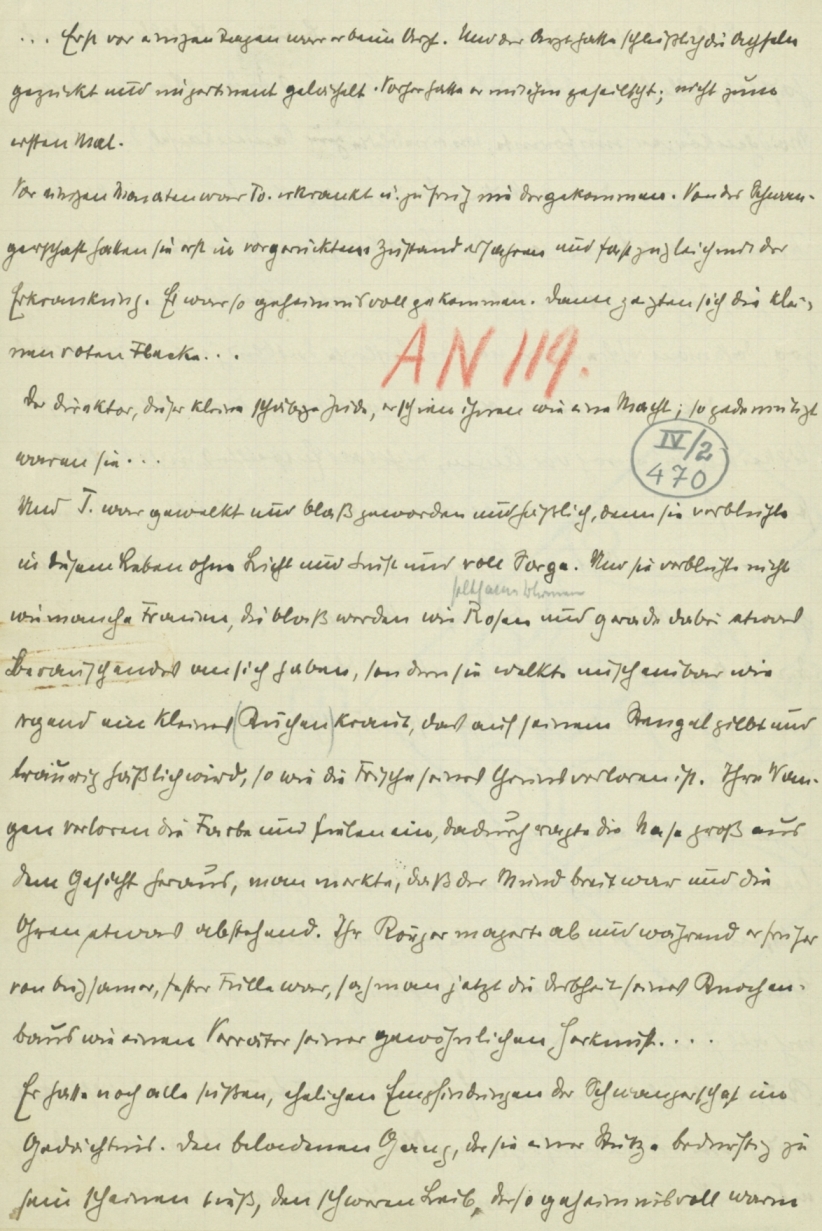 ... Erst vor einigen Tagen war er beim Arzt. Und der Arzt hatte schließlich die Achseln
gezuckt und impertinent gelächelt. Vorher hatte er mit ihm gefeilscht; nicht zum
ersten Mal.
Vor einigen Monaten war To. erkrankt u. zu ihm gekommen. Von der Schwan-
gerschaft hatten sie erst in vorgerücktem Zustand erfahren und fast zugleich mit der
Erkrankung. Es war so geheimnisvoll gekommen. Dann zeigten sich die klei-
nen roten Flecke...
AN 119.
Der Direktor, dieser kleine schäbige Jude, erschien ihnen wie eine Macht; so gedemütigt
IV/2
470
waren sie...
Und T. war gewelkt und blaß geworden und häßlich, denn sie verblühte
in diesem Leben ohne Licht und Lust und voll Sorge. Und sie verblühte nicht
wie manche Frauen, die blaß werden wie Rosen und gerade dabei etwas
Berauschendes an sich haben, sondern sie welkte unscheinbar wie
irgend ein kleines (Küchen)kraut, das auf seinem Stengel gilbt und
traurig häßlich wird, so wie die Frische seines Grüns verloren ist. Ihre Wan-
gen verloren die Farbe und fielen ein, dadurch ragte die Nase groß aus
dem Gesicht heraus, man merkte, daß der Mund breit war und die
Ohren etwas abstehend. Ihr Körper magerte ab und während er früher
von biegsamer, fester Fülle war, sah man jetzt die Derbheit seines Knochen-
baus wie einen Verräter seiner gewöhnlichen Herkunft....
Er hatte noch alle süßen, ehelichen Empfindungen der Schwangerschaft im
Gedächtnis. Den beladenen Gang, der sie einer Stütze bedürftig zu
sein scheinen ließ, den schweren Leib, der so geheimnisvoll warm